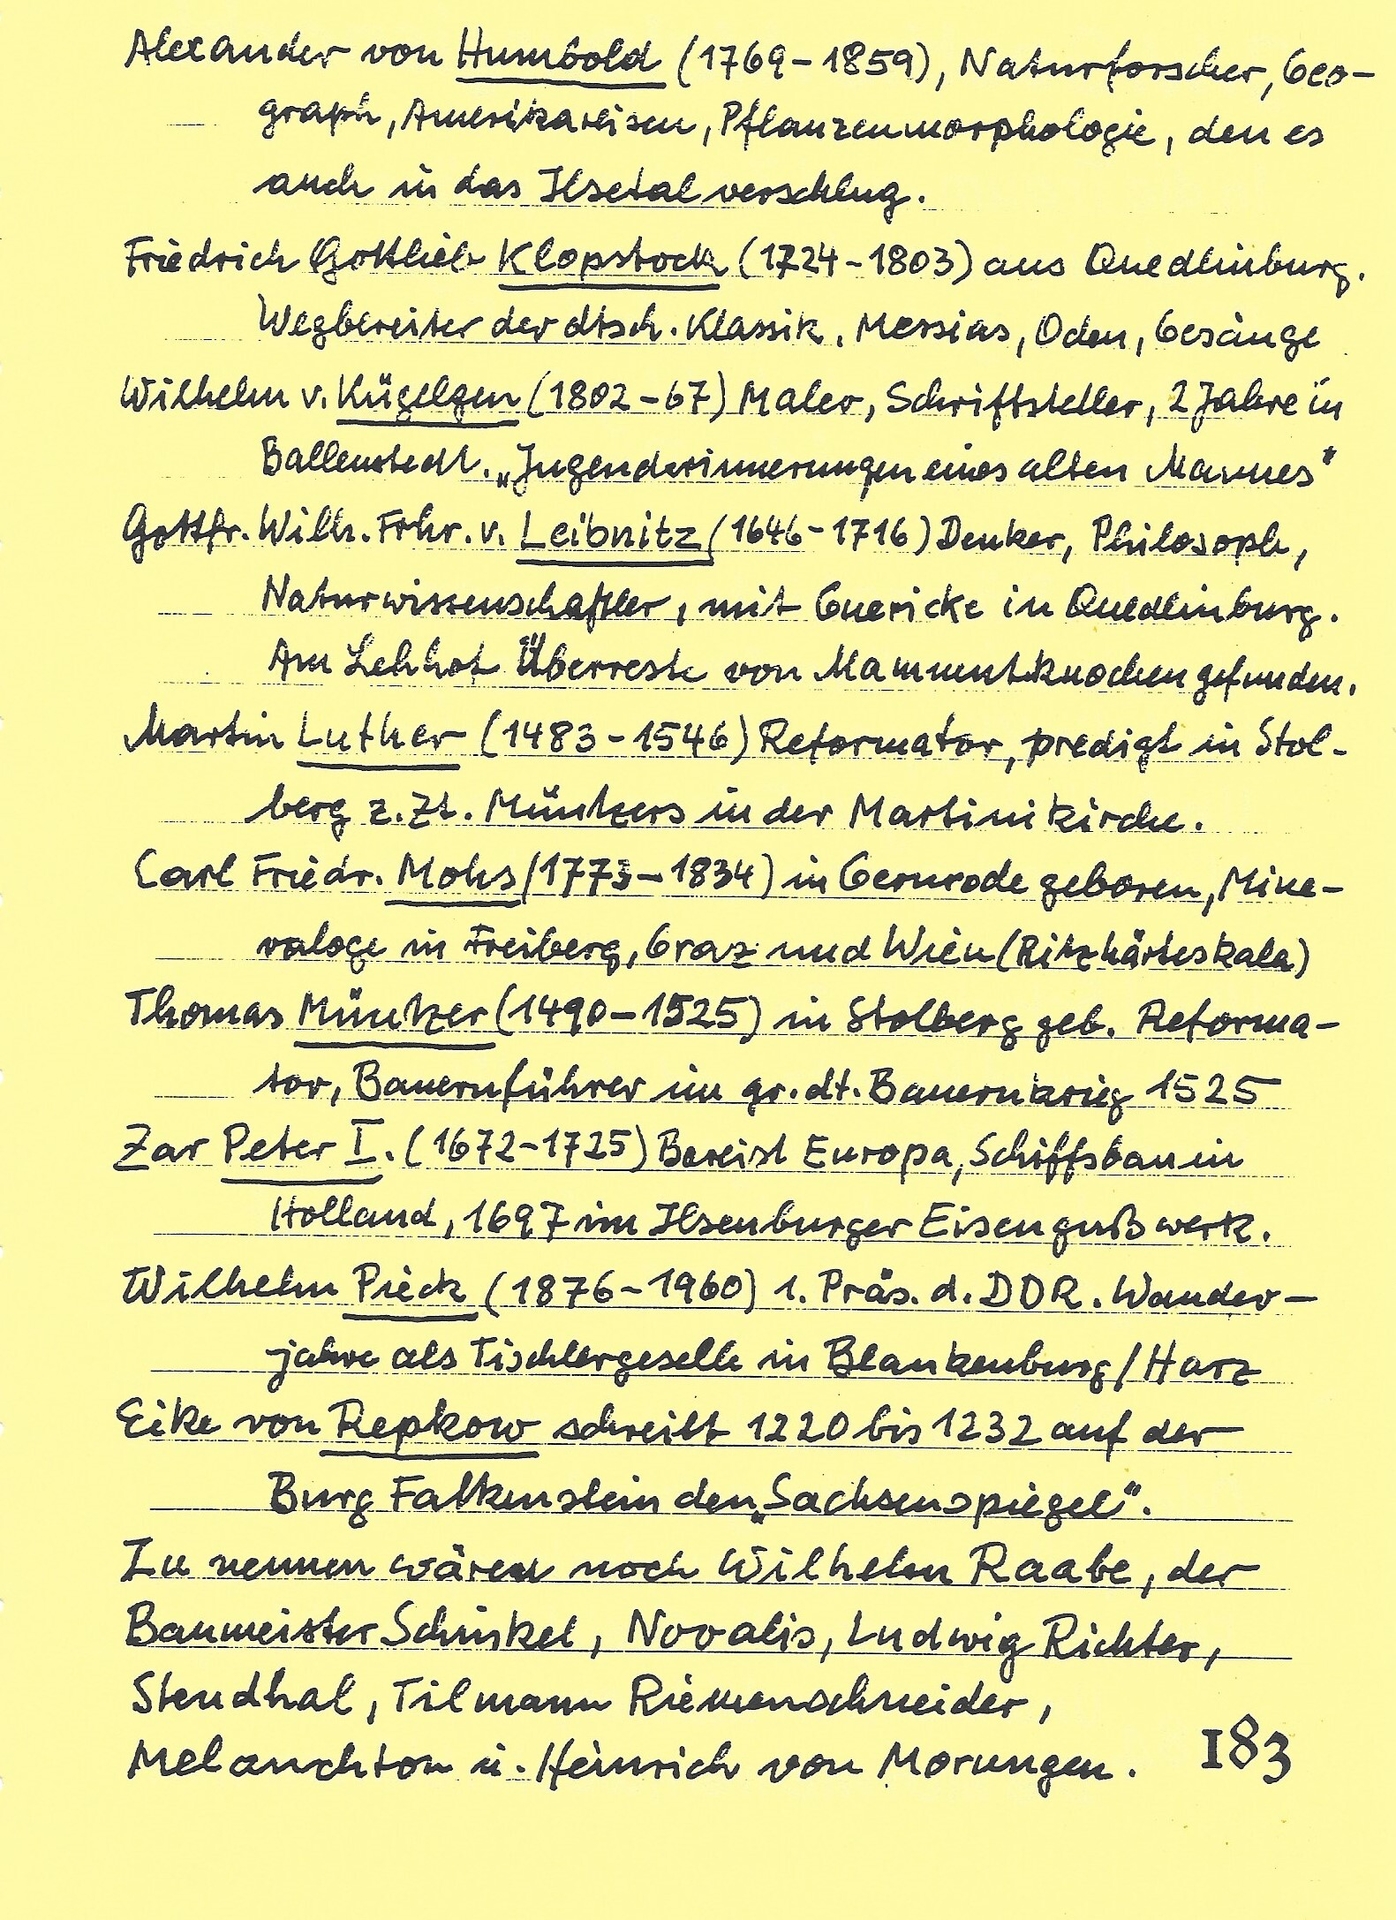 Alexander von Humbold (1769-1859), Naturforscher, Geo-
graph, Amerikareisen, Pflanzenmorphologie, den es
auch in das Ilsetal verschlug.
Friedrich Gottlieb Klopstock (1724-1803) aus Quedlinburg.
Wegbereiter der dtsch. Klassik, Messias, Oden, Gesänge
Wilhelm v. Kügelgen (1802-67) Maler, Schriftsteller, 2 Jahre in
Ballenstedt. „Jugenderinnerungen eines alten Mannes"
Gottfr. Wilh. Frhr. v. Leibnitz (1646-1716) Denker, Philosoph,
Naturwissenschaftler, mit Guericke in Quedlinburg.
Am Lehhot Überreste von Mammutknochen gefunden.
Martin Luther (1483-1546) Reformator, predigt in Stol-
berg z.Zt. Müntzers in der Martinikirche.
Carl Friedr. Mohs (1773-1834) in Gernrode geboren, Mine-
raloge in Freiberg, Graz und Wien (Ritzhärteskala)
Thomas Müntzer (1490-1525) in Stolberg geb. Reforma-
tor, Bauernführer im gr. dt. Bauernkrieg 1525
Zar Peter I. (1672-1725) Bereist Europa, Schiffsbau in
Holland, 1697 im Ilsenburger Eisengußwerk.
Wilhelm Pieck (1876-1960) 1. Präs. d. DDR. Wander-
jahre als Tischlergeselle in Blankenburg/Harz
Eike von Repkow schreibt 1220 bis 1232 auf der
Burg Falkenstein den „Sachsenspiegel".
Zu nennen wären noch Wilhelm Raabe, der
Baumeister Schinkel, Novalis, Ludwig Richter,
Stendhal, Tilmann Riemenschneider,
Melanchton u. Heinrich von Morungen.
183